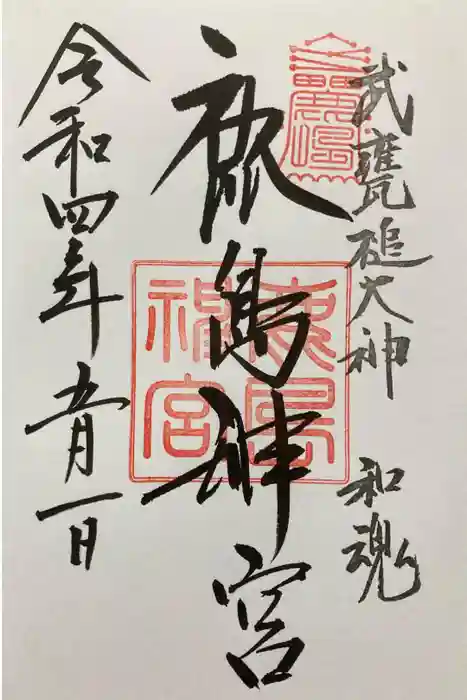 武甕槌大神　和魂
鹿島神宮
令和四年五月一日
鹿島
神宮